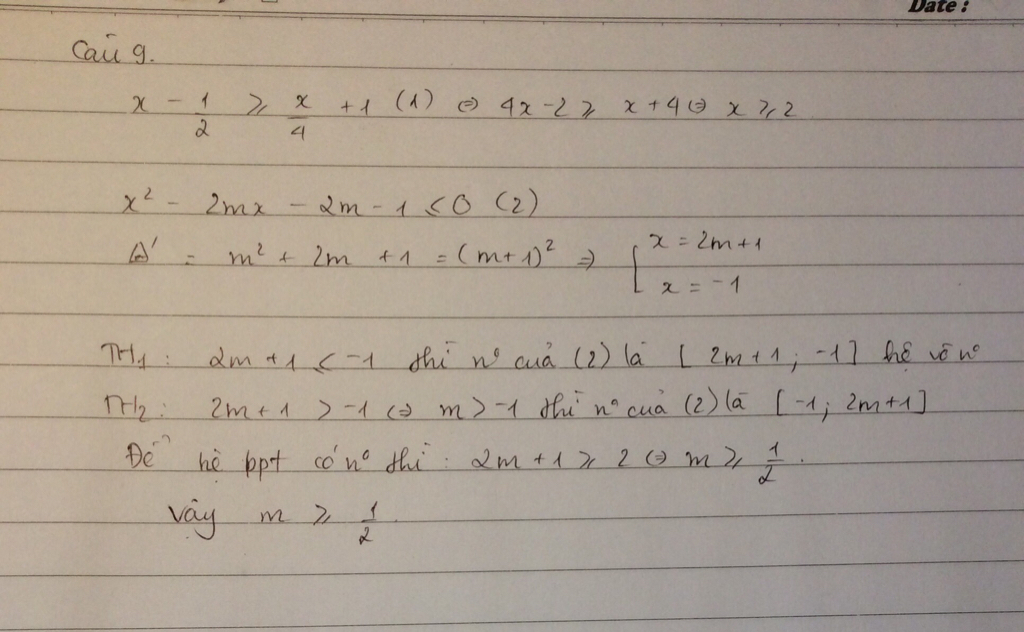 Date :
Câu 9.
x - 1/2 ≥ x/4 + 1 (1) ⇔ 4x - 2 ≥ x + 4 ⇔ x ≥ 2
x² - 2mx - 2m - 1 ≤ 0 (2)
Δ' = m² + 2m + 1 = (m+1)² ⇒ [ x = 2m+1
x = -1
TH1 : 2m + 1 < -1 thì n⁰ của (2) là [ 2m+1 ; -1] hệ vô n⁰
TH2 : 2m + 1 > -1 ⇔ m > -1 thì n⁰ của (2) là [-1; 2m+1]
Để hệ bpt có n⁰ thì : 2m + 1 ≥ 2 ⇔ m ≥ 1/2 .
Vậy m ≥ 1/2 .